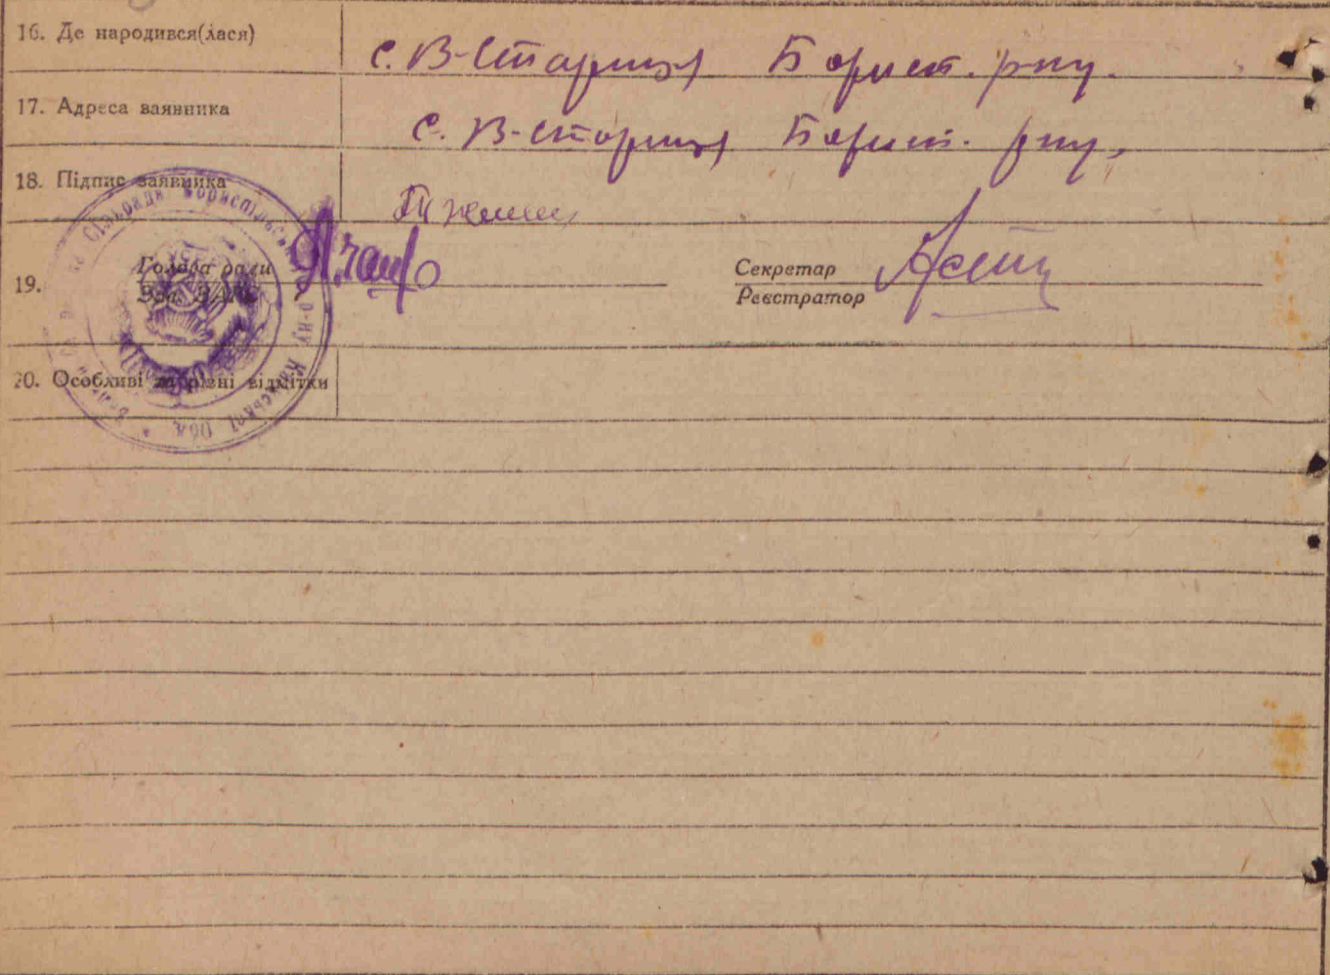 16. Де народився(лася)
с. В-Стариця Борисп. р-ну.
17. Адреса заявника
с. В-Стариця Борисп. р-ну,
18. Підпис заявника
19.
Голова ради
Зав.
Секретар
Реєстратор
20. Особливі та різні відмітки
Сільрада Бориспільського р-ну Київської Обл.